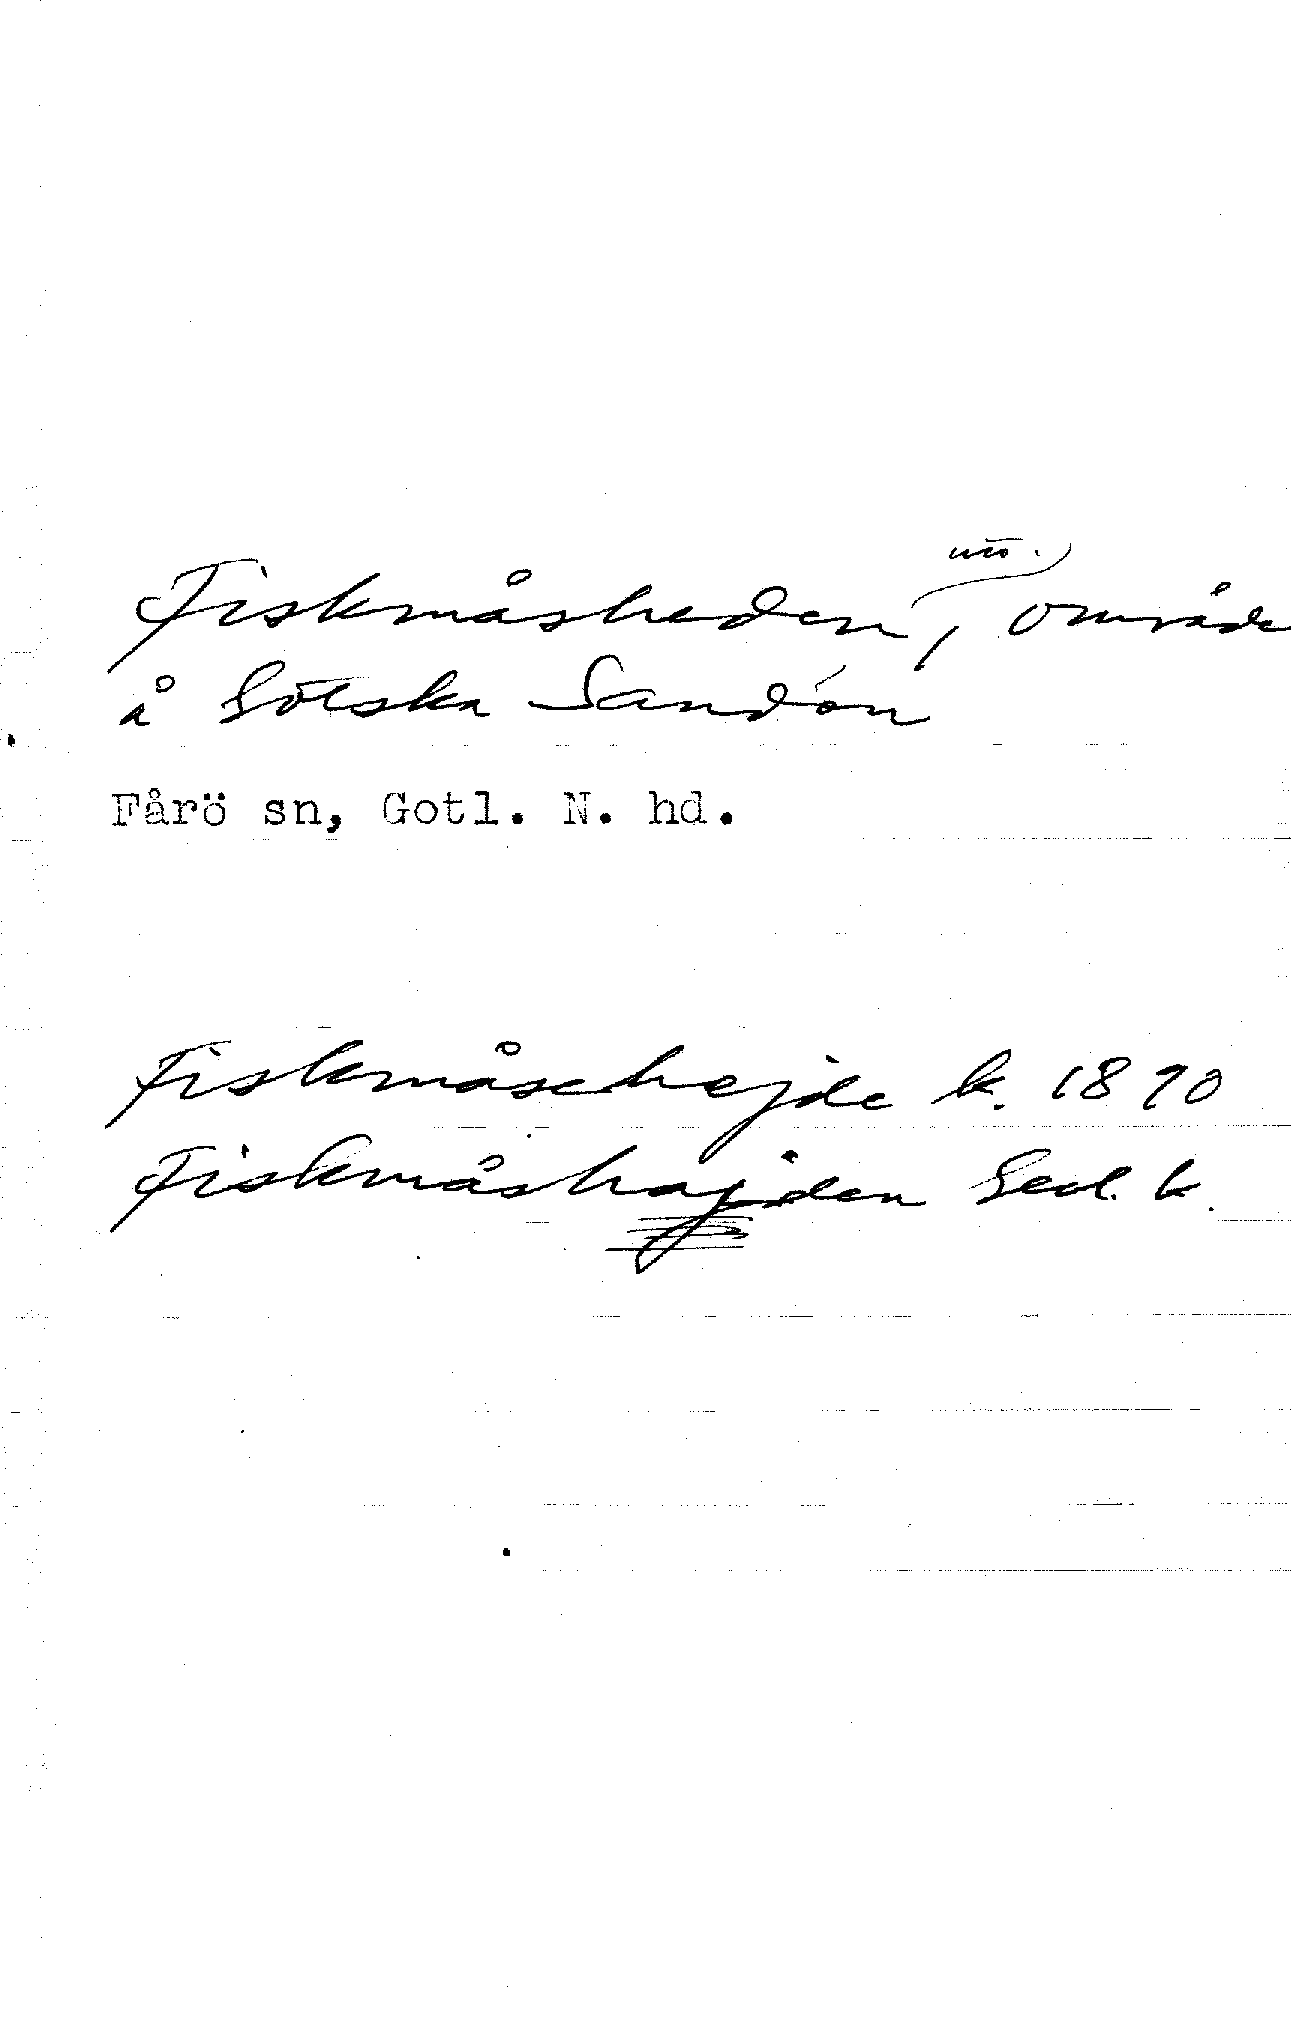 Fiskmåsheden, område
å Gotska Sandön
Fårö sn, Gotl. N. hd.
Fiskmåsehejde k. 1870
Fiskmåshajden Geol. k.